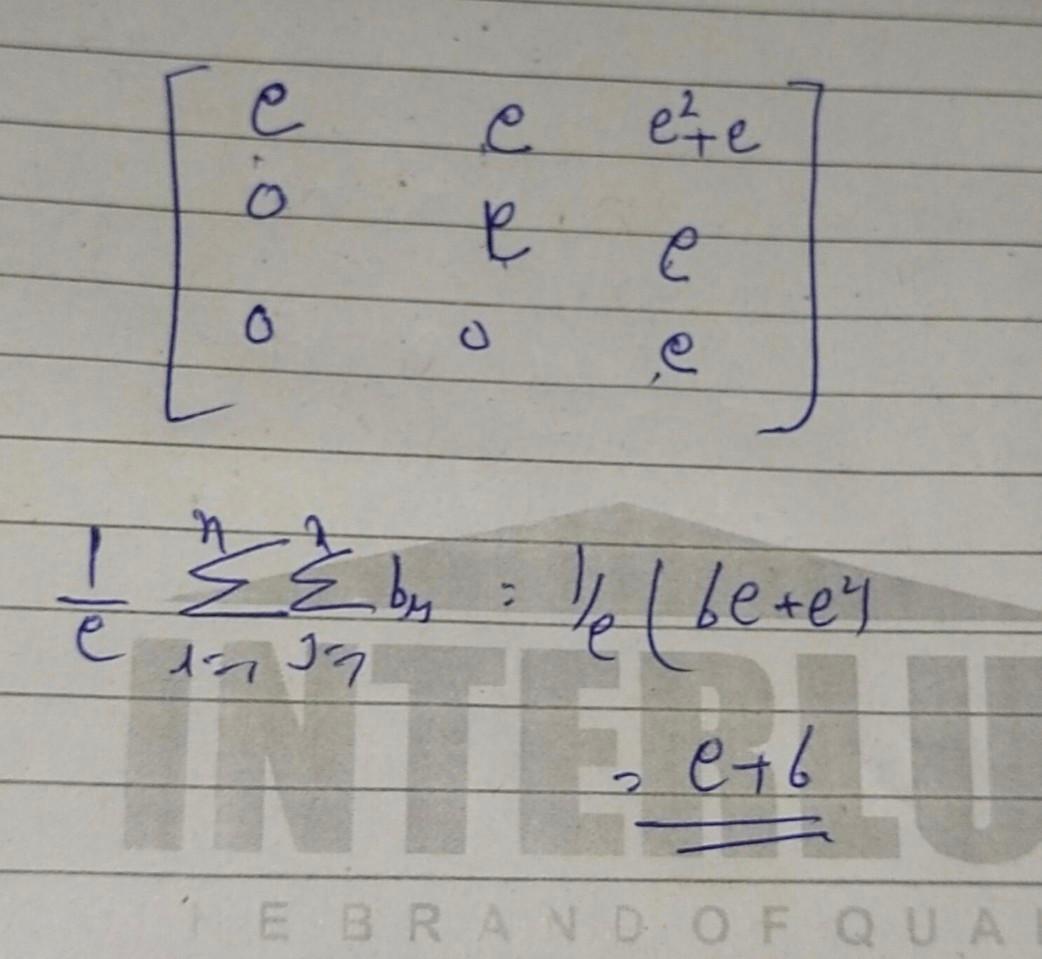 e e e²+e
0 e e
0 0 e
1/e Σ Σ b = 1/e ( 6e+e²)
= e+6
INTERLU
E BRAND OF QUA